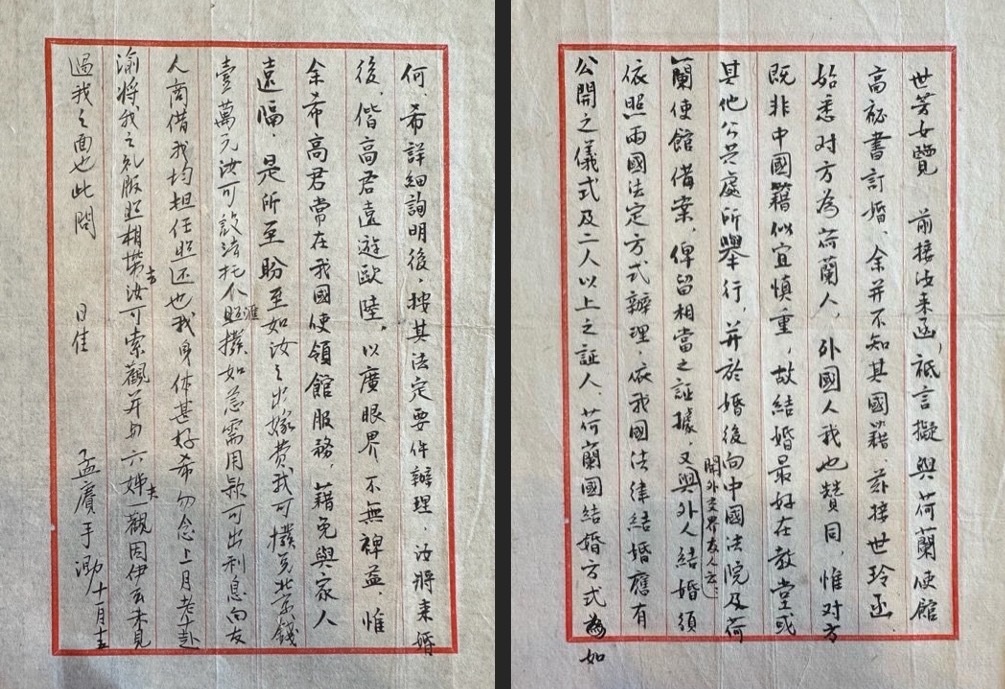 世芳女覽 前接汝来函,祇言擬與荷蘭使館
高祕書訂婚、余并不知其國籍、玆接世玲函
始悉对方為荷蘭人,外國人我也贊同 惟对方
既非中國籍似宜慎重,故結婚最好在教堂或
其他公共處所舉行,并於婚後向中國法院及荷
蘭使館備案,俾留相當之証據,又與外人結婚須
聞外交界友人云:
依照兩國法定方式辦理,依我國法律結婚應有
公開之儀式及二人以上之証人、荷蘭國結婚方式為如
何、希詳細詢明後,按其法定要件辦理,汝將来婚
後,偕高君遠遊歐陸,以廣眼界不無裨益,惟
余希高君常在我國使領館服務,藉免與家人
遠隔,是所至盼至如汝之出嫁費我可撥兌北京錢
壹萬元汝可設法托人照撥如急需用款可出利息向友
匯
人商借我均担任照还也我身体甚好希勿念上月老七赴
渝將我之礼服照相帶去汝可索觀并与六姊夫一觀因伊云未見
過我之面也此問
日佳
孟賡手泐十一月